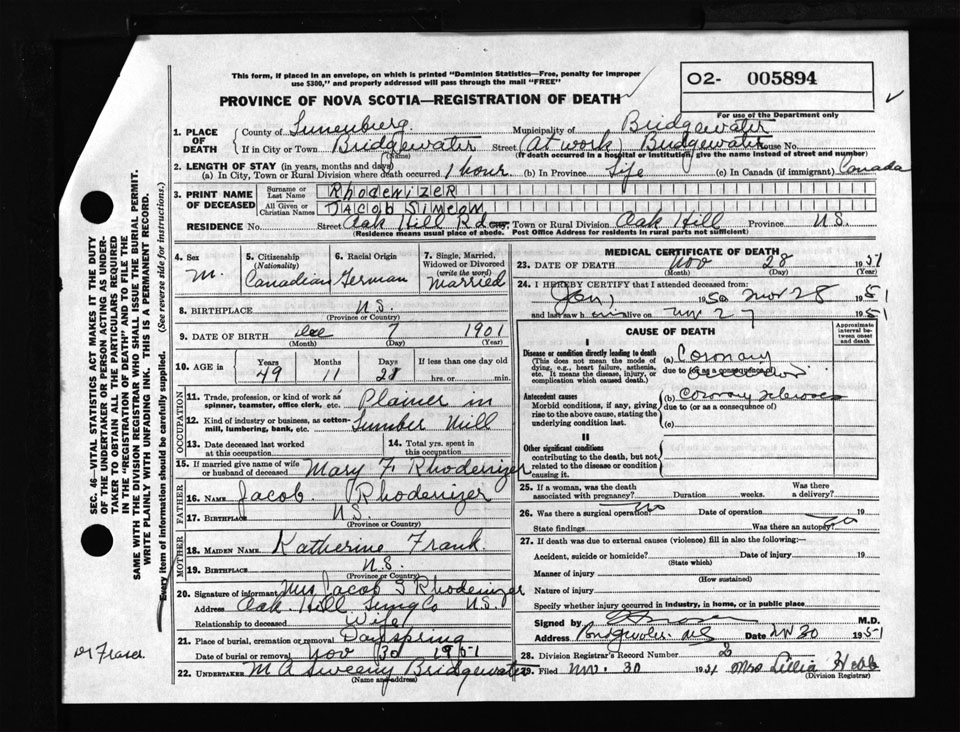 This form, if placed in an envelope, on which is printed "Dominion Statistics—Free, penalty for improper
use $300," and properly addressed will pass through the mail "FREE"
O2- 005894
PROVINCE OF NOVA SCOTIA—REGISTRATION OF DEATH
For use of the Department only
1. PLACE OF DEATH
County of Lunenburg. Municipality of Bridgewater
If in City or Town Bridgewater Street (at work) Bridgewater House No.
(Name) (If death occurred in a hospital or institution, give the name instead of street and number)
2. LENGTH OF STAY (in years, months and days)
(a) In City, Town or Rural Division where death occurred 1 hour. (b) In Province Life (c) In Canada (if immigrant) Canada
3. PRINT NAME OF DECEASED
Surname or Last Name RHODENIZER
All Given or Christian Names JACOB SIMEON
RESIDENCE No. Street Oak Hill Rd City, Town or Rural Division Oak Hill Province N.S.
(Residence means usual place of abode. Post Office Address for residents in rural parts not sufficient)
4. Sex
M.
5. Citizenship (Nationality)
Canadian
6. Racial Origin
German
7. Single, Married, Widowed or Divorced (write the word)
Married
8. BIRTHPLACE N.S.
(Province or Country)
9. DATE OF BIRTH Dec 7 1901
(Month) (Day) (Year)
10. AGE in
Years Months Days If less than one day old
49 11 21 hrs. or min.
OCCUPATION
11. Trade, profession, or kind of work as spinner, teamster, office clerk, etc. Planer in
12. Kind of industry or business, as cotton-mill, lumbering, bank, etc. Lumber Mill
13. Date deceased last worked at this occupation
14. Total yrs. spent in this occupation
15. If married give name of wife or husband of deceased Mary F. Rhodenizer
FATHER
16. NAME Jacob Rhodenizer
17. BIRTHPLACE N.S.
(Province or Country)
MOTHER
18. MAIDEN NAME Katherine Frank.
19. BIRTHPLACE N.S.
(Province or Country)
20. Signature of informant Mrs Jacob S Rhodenizer
Address Oak Hill Lungco N.S.
Relationship to deceased Wife
21. Place of burial, cremation or removal Dayspring
Date of burial or removal Nov 30 1951
22. UNDERTAKER M A Sweeny Bridgewater
(Name and address)
MEDICAL CERTIFICATE OF DEATH
23. DATE OF DEATH Nov 28 1951
(Month) (Day) (Year)
24. I HEREBY CERTIFY that I attended deceased from
Jan 1950 Nov 28 1951
and last saw h im alive on Nov 27 1951
CAUSE OF DEATH
Approximate interval between onset and death
I
Disease or condition directly leading to death
(This does not mean the mode of dying, e.g., heart failure, asthenia, etc. It means the disease, injury, or complication which caused death.
(a) Coronary
due to (or as a consequence of) occlusion
Antecedent causes
Morbid conditions, if any, giving rise to the above cause, stating the underlying condition last.
(b) Coronary sclerosis
due to (or as a consequence of)
(c)
II
Other significant conditions
contributing to the death, but not related to the disease or condition causing it.
25. If a woman, was the death associated with pregnancy? Duration weeks. Was there a delivery?
26. Was there a surgical operation? no Date of operation 19
State findings Was there an autopsy? no
27. If death was due to external causes (violence) fill in also the following:—
Accident, suicide or homicide? Date of injury 19
(State which)
Manner of injury
(How sustained)
Nature of injury
Specify whether injury occurred in industry, in home, or in public place
Signed by M.D.
Address Bridgewater NS Date Nov 30 1951
28. Division Registrar's Record Number
29. Filed Nov. 30 1951 Mrs Lellia Hebb
(Division Registrar)
SEC. 46—VITAL STATISTICS ACT MAKES IT THE DUTY
OF THE UNDERTAKER OR PERSON ACTING AS UNDER-
TAKER TO OBTAIN ALL THE PARTICULARS REQUIRED
IN THE "REGISTRATION OF DEATH" AND TO FILE THE
SAME WITH THE DIVISION REGISTRAR WHO SHALL ISSUE THE BURIAL PERMIT.
WRITE PLAINLY WITH UNFADING INK. THIS IS A PERMANENT RECORD.
Every item of information should be carefully supplied. (See reverse side for instructions.)
Dr Fraser